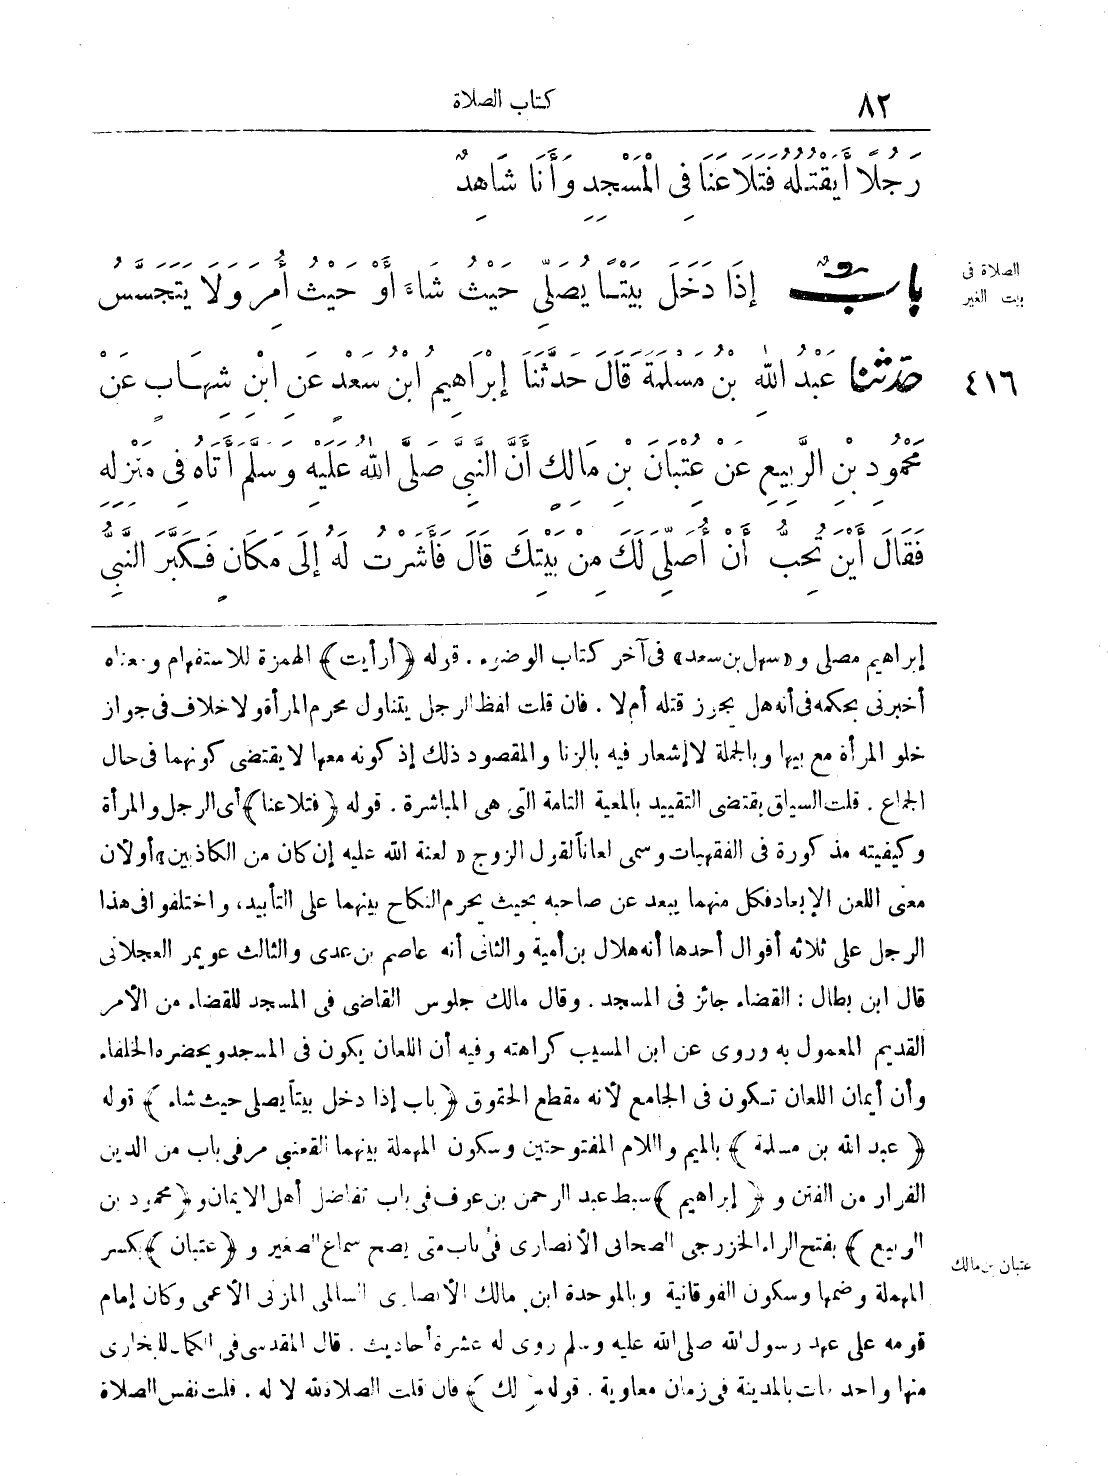 ٨٢
كتاب الصلاة
رَجُلًا أَيَقْتُلُهُ فَتَلَاعَنَا فِى الْمَسْجِدِ وَأَنَا شَاهِدٌ
الصلاة فى
بيت الغير
بابٌ إِذَا دَخَلَ بَيْتًا يُصَلِّى حَيْثُ شَاءَ أَوْ حَيْثُ أُمِرَ وَلَا يَتَجَسَّسُ
٤١٦
حدثنا عَبْدُ اللهِ بْنُ مَسْلَمَةَ قَالَ حَدَّثَنَا إِبْرَاهِيمُ ابْنُ سَعْدٍ عَنِ ابْنِ شِهَابٍ عَنْ
مَحْمُودِ بْنِ الرَّبِيعِ عَنْ عِتْبَانَ بْنِ مَالِكٍ أَنَّ النَّبِىَّ صَلَّى اللهُ عَلَيْهِ وَسَلَّمَ أَتَاهُ فِى مَنْزِلِهِ
فَقَالَ أَيْنَ تُحِبُّ أَنْ أُصَلِّىَ لَكَ مِنْ بَيْتِكَ قَالَ فَأَشَرْتُ لَهُ إِلَى مَكَانٍ فَكَبَّرَ النَّبِىُّ
إبراهيم مصلى و «سهل بن سعد» فى آخر كتاب الوضوء . قوله ﴿أرأيت﴾ الهمزة للاستفهام ومعناه
أخبرنى بحكمه فى أنه هل يجوز قتله أم لا . فان قلت لفظ الرجل يتناول محرم المرأة ولا خلاف فى جواز
خلو المرأة مع بيها وبالجملة لا إشعار فيه بالزنا والمقصود ذلك إذ كونه معها لا يقتضى كونهما فى حال
الجماع . قلت السياق يقتضى التقييد بالمعية التامة التى هى المباشرة . قوله ﴿فتلاعنا﴾ أى الرجل والمرأة
وكيفيته مذكورة فى الفقهيات وسمى لعاناً لقول الزوج « لعنة الله عليه إن كان من الكاذبين» أو لان
معنى اللعن الإبعاد فكل منهما يبعد عن صاحبه بحيث يحرم النكاح بينهما على التأبيد، واختلفوا فى هذا
الرجل على ثلاثه أقوال أحدها أنه هلال بن أمية والثانى أنه عاصم بن عدى والثالث عويمر العجلانى
قال ابن بطال : القضاء جائز فى المسجد . وقال مالك جلوس القاضى فى المسجد للقضاء من الأمر
القديم المعمول به وروى عن ابن المسيب كراهته وفيه أن اللعان يكون فى المسجد ويحضره الخلفاء
وأن أيمان اللعان تكون فى الجامع لأنه مقطع الحقوق ﴿باب إذا دخل بيتاً يصلى حيث شاء ﴾ قوله
﴿ عبد الله بن مسلمة ﴾ بالميم واللام المفتوحتين وسكون المهملة بينهما القعنبى مر فى باب من الدين
الفرار من الفتن و ﴿ إبراهيم ﴾ سبط عبد الرحمن بن عوف فى باب تفاضل أهل الايمان و ﴿محمود بن
الربيع ﴾ بفتح الراء الخزرجى الصحابى الأنصارى فى باب متى يصح سماع الصغير و ﴿عتبان ﴾ بكسر
عتبان بن مالك
المهملة وضمها وسكون الفوقانية وبالموحدة ابن مالك الأنصارى السالمى المزنى الأعمى وكان إمام
قومه على عهد رسول الله صلى الله عليه وسلم روى له عشرة أحاديث . قال المقدسى فى الكمال للبخارى
منها واحد مات بالمدينة فى زمان معاوية . قوله ﴿ لك ﴾ فان قلت الصلاة لله لا له . قلت نفس الصلاة